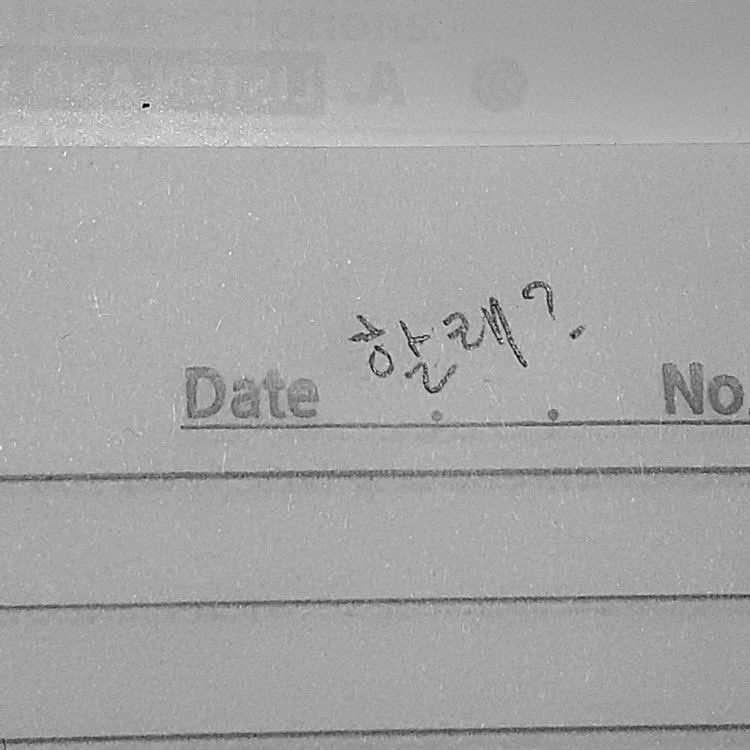 Date 할래? No.